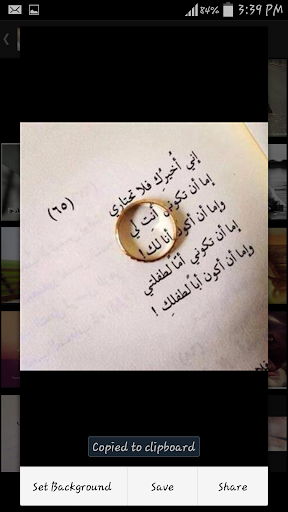 84% 3:39 PM
إني أُخيرُك فلا تحتاري
(٦٥)
إما أن تكوني أنت لي
وإما أن أكون أنا لك!
إما أن تكوني أمًا لطفلتي
وإما أن أكون أبًا لطفلكِ !
Copied to clipboard
Set Background
Save
Share